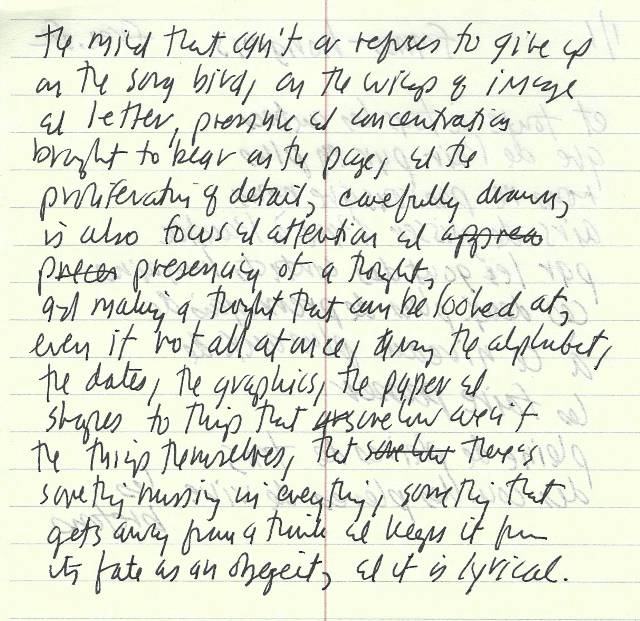 the mind that can't or refuses to give up
on the song bird, on the wings of image
and letter, pressure and concentration
brought to bear on the page, and the
proliferating of detail, carefully drawn,
is also focus and attention and
presencing of a thought,
and making a thought that can be looked at,
even if not all at once, through the alphabet,
the dates, the graphics, the paper and
shapes to things that somehow aren't
the things themselves, that there's
something missing in everything, something that
gets away from a think and keeps it from
its fate as an object, and it is lyrical.